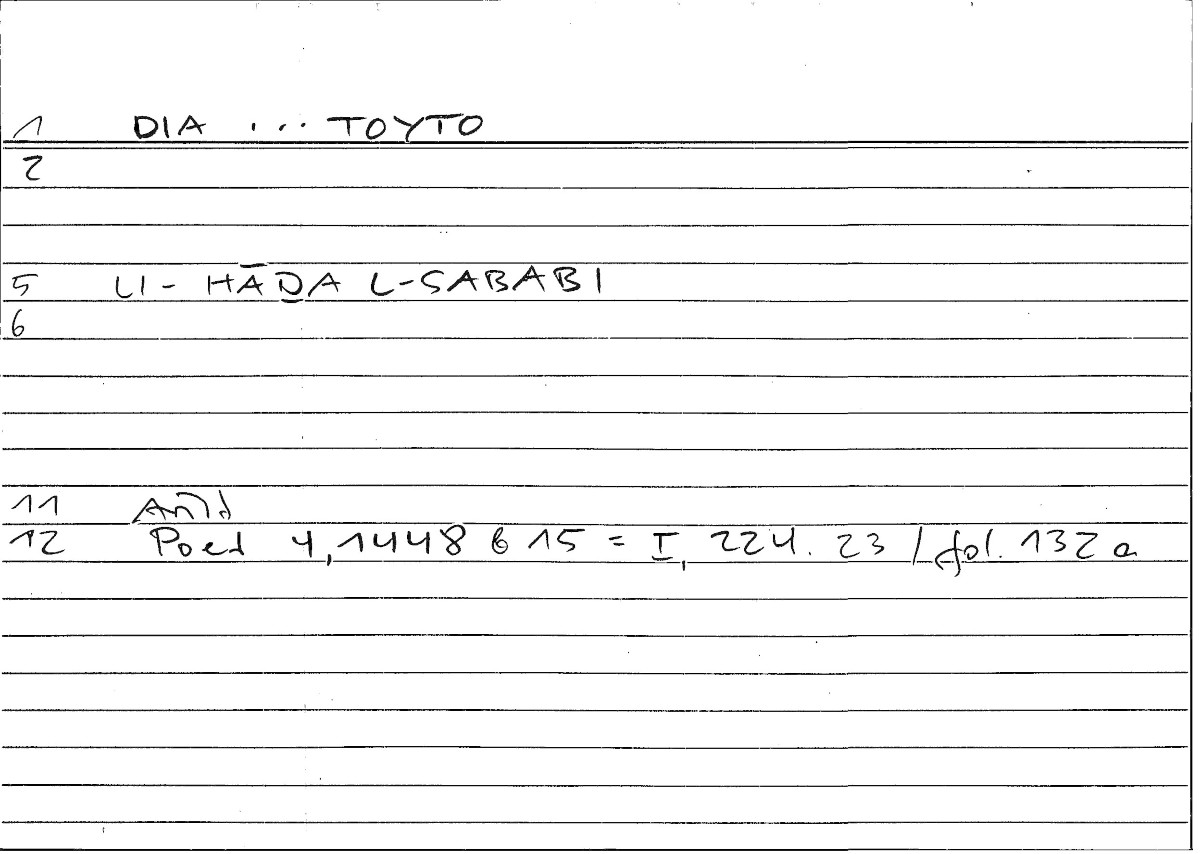 1 DIA ... TOYTO
2
5 LI - HĀḎA L-SABABI
6
11 Arist
12 Poet 4,1448 b 15 = I, 224.23 / fol. 132 a